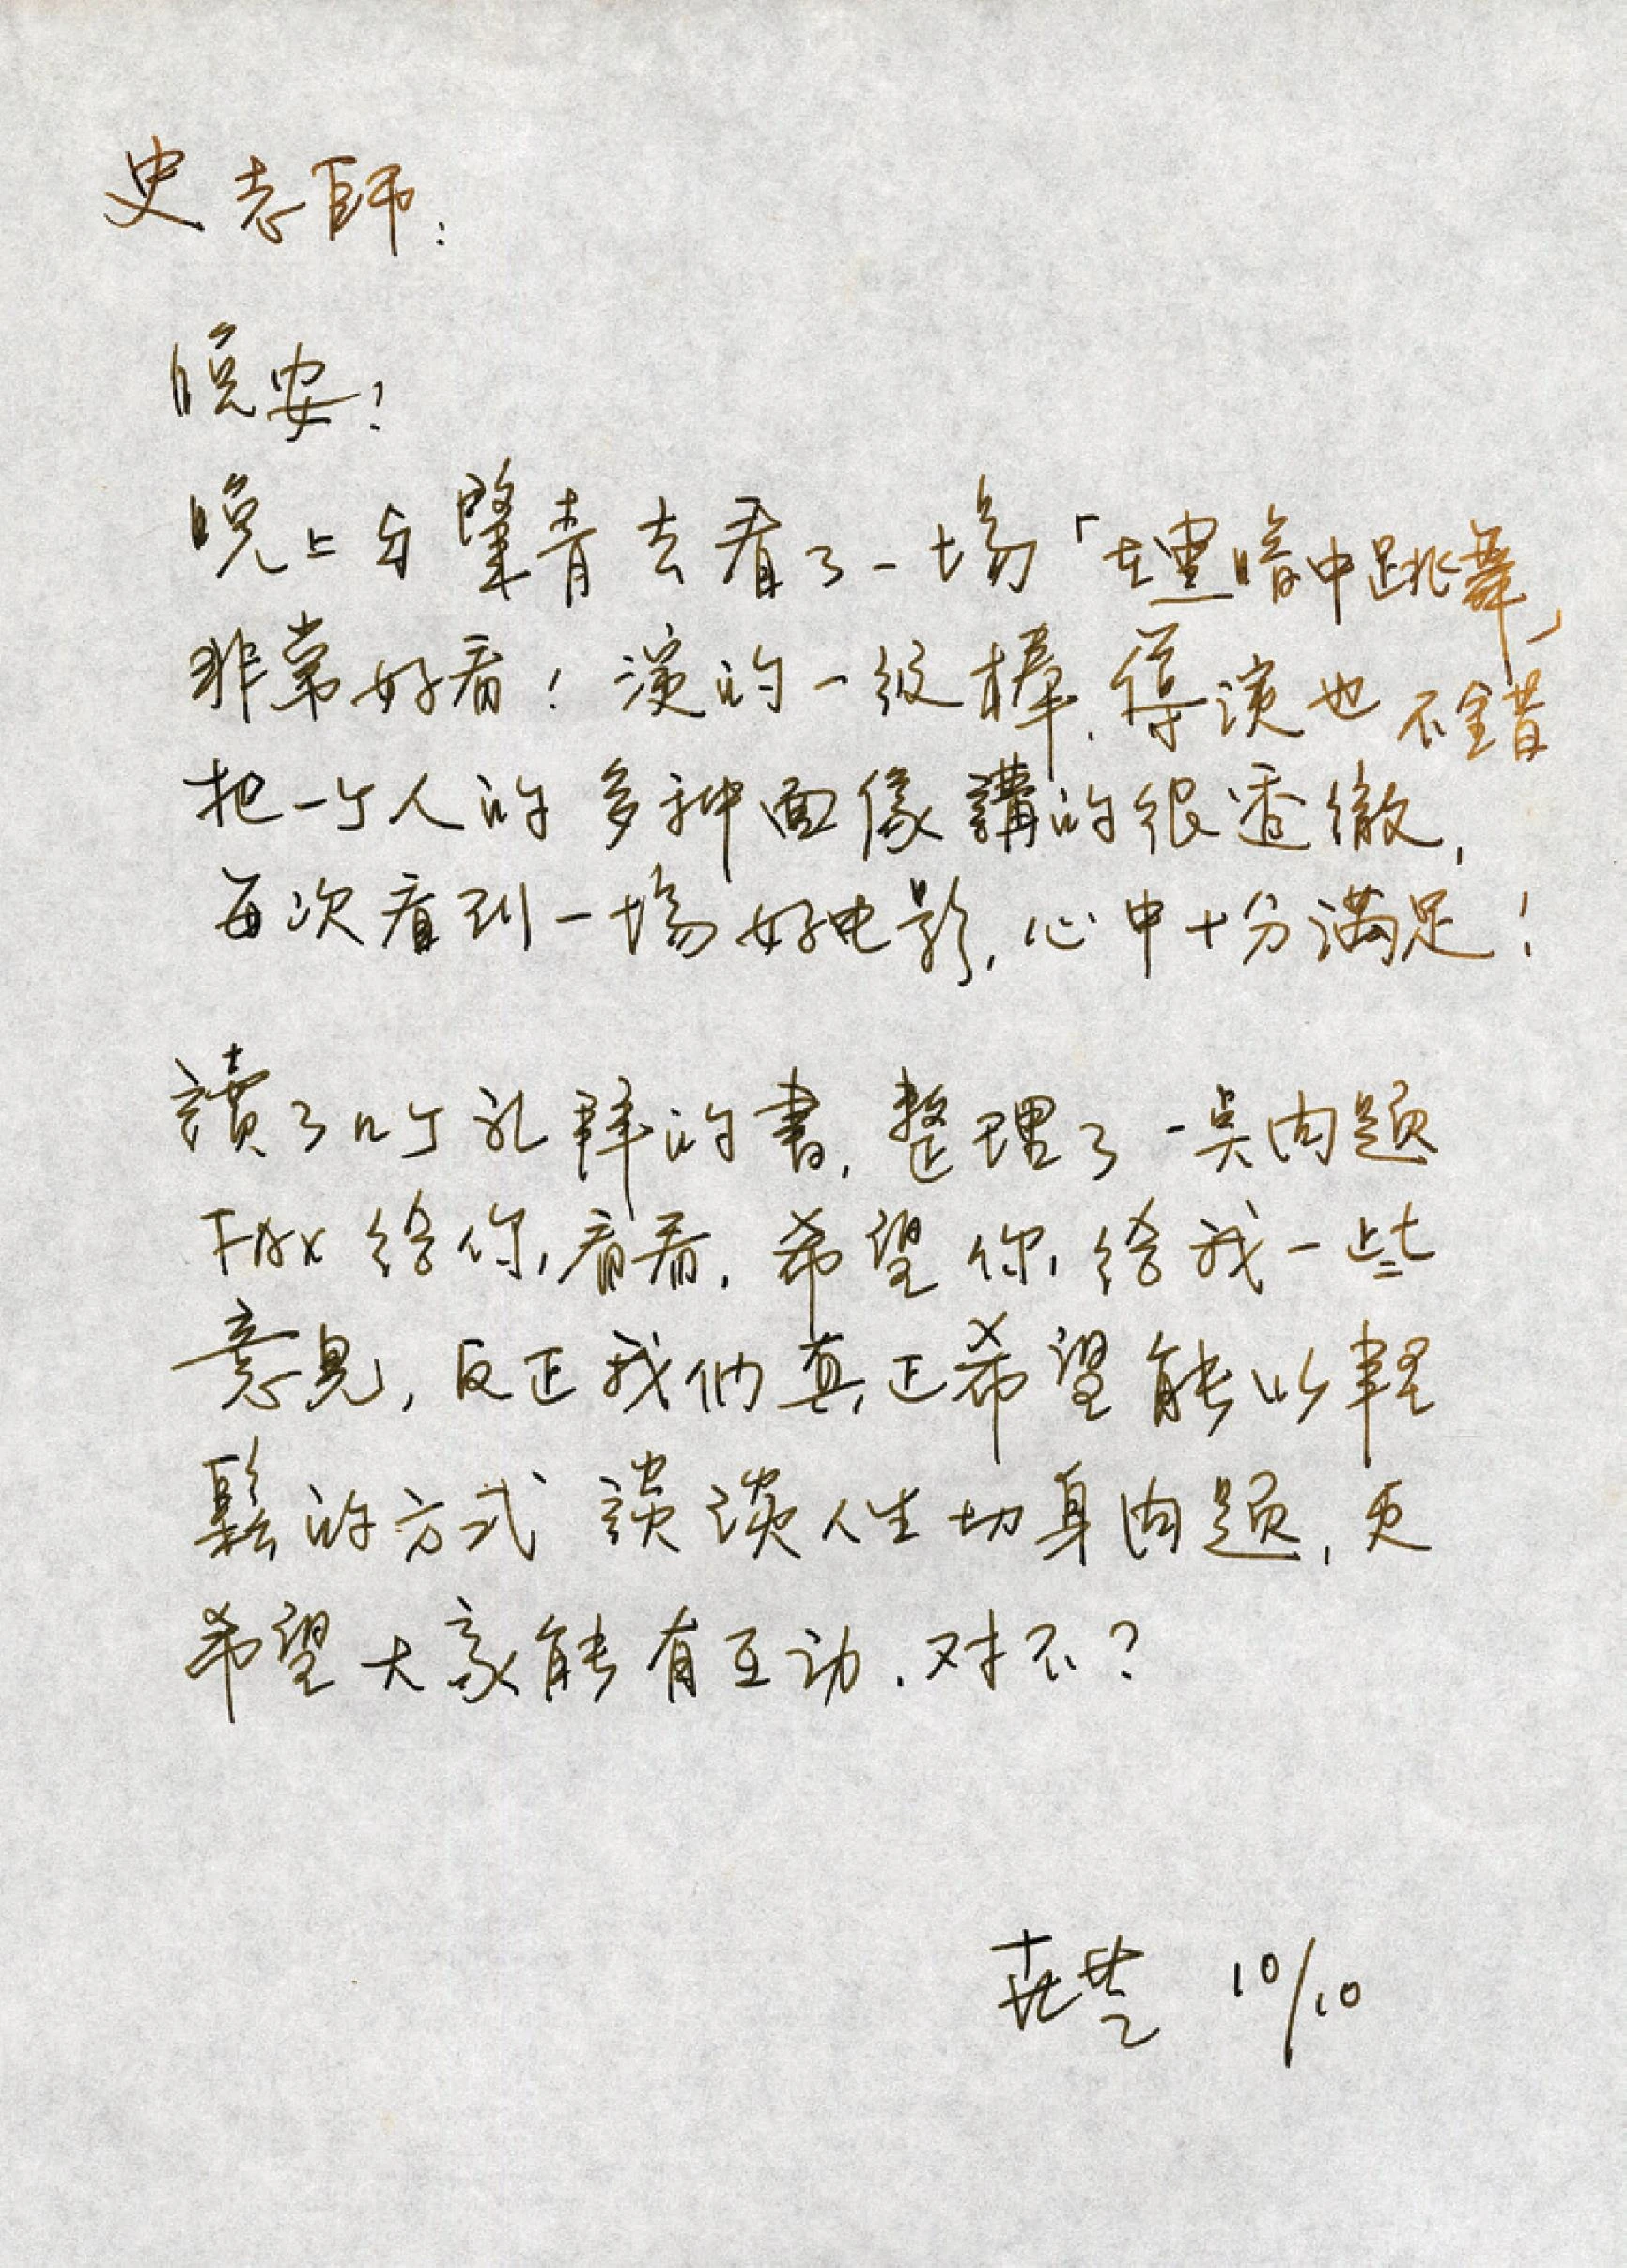 史老師:
晚安!
晚上与肇青去看了一場「在黑暗中跳舞」
非常好看!演的一级棒,導演也不錯
把一个人的多种面像講的很透徹,
每次看到一場好电影,心中十分滿足!
讀了几个礼拜的書,整理了一点问题
FAX给你看看,希望你给我一些
意見,反正我們真正希望能以輕
鬆的方式談談人生切身问题,更
希望大家能有互动,对不?
10/10